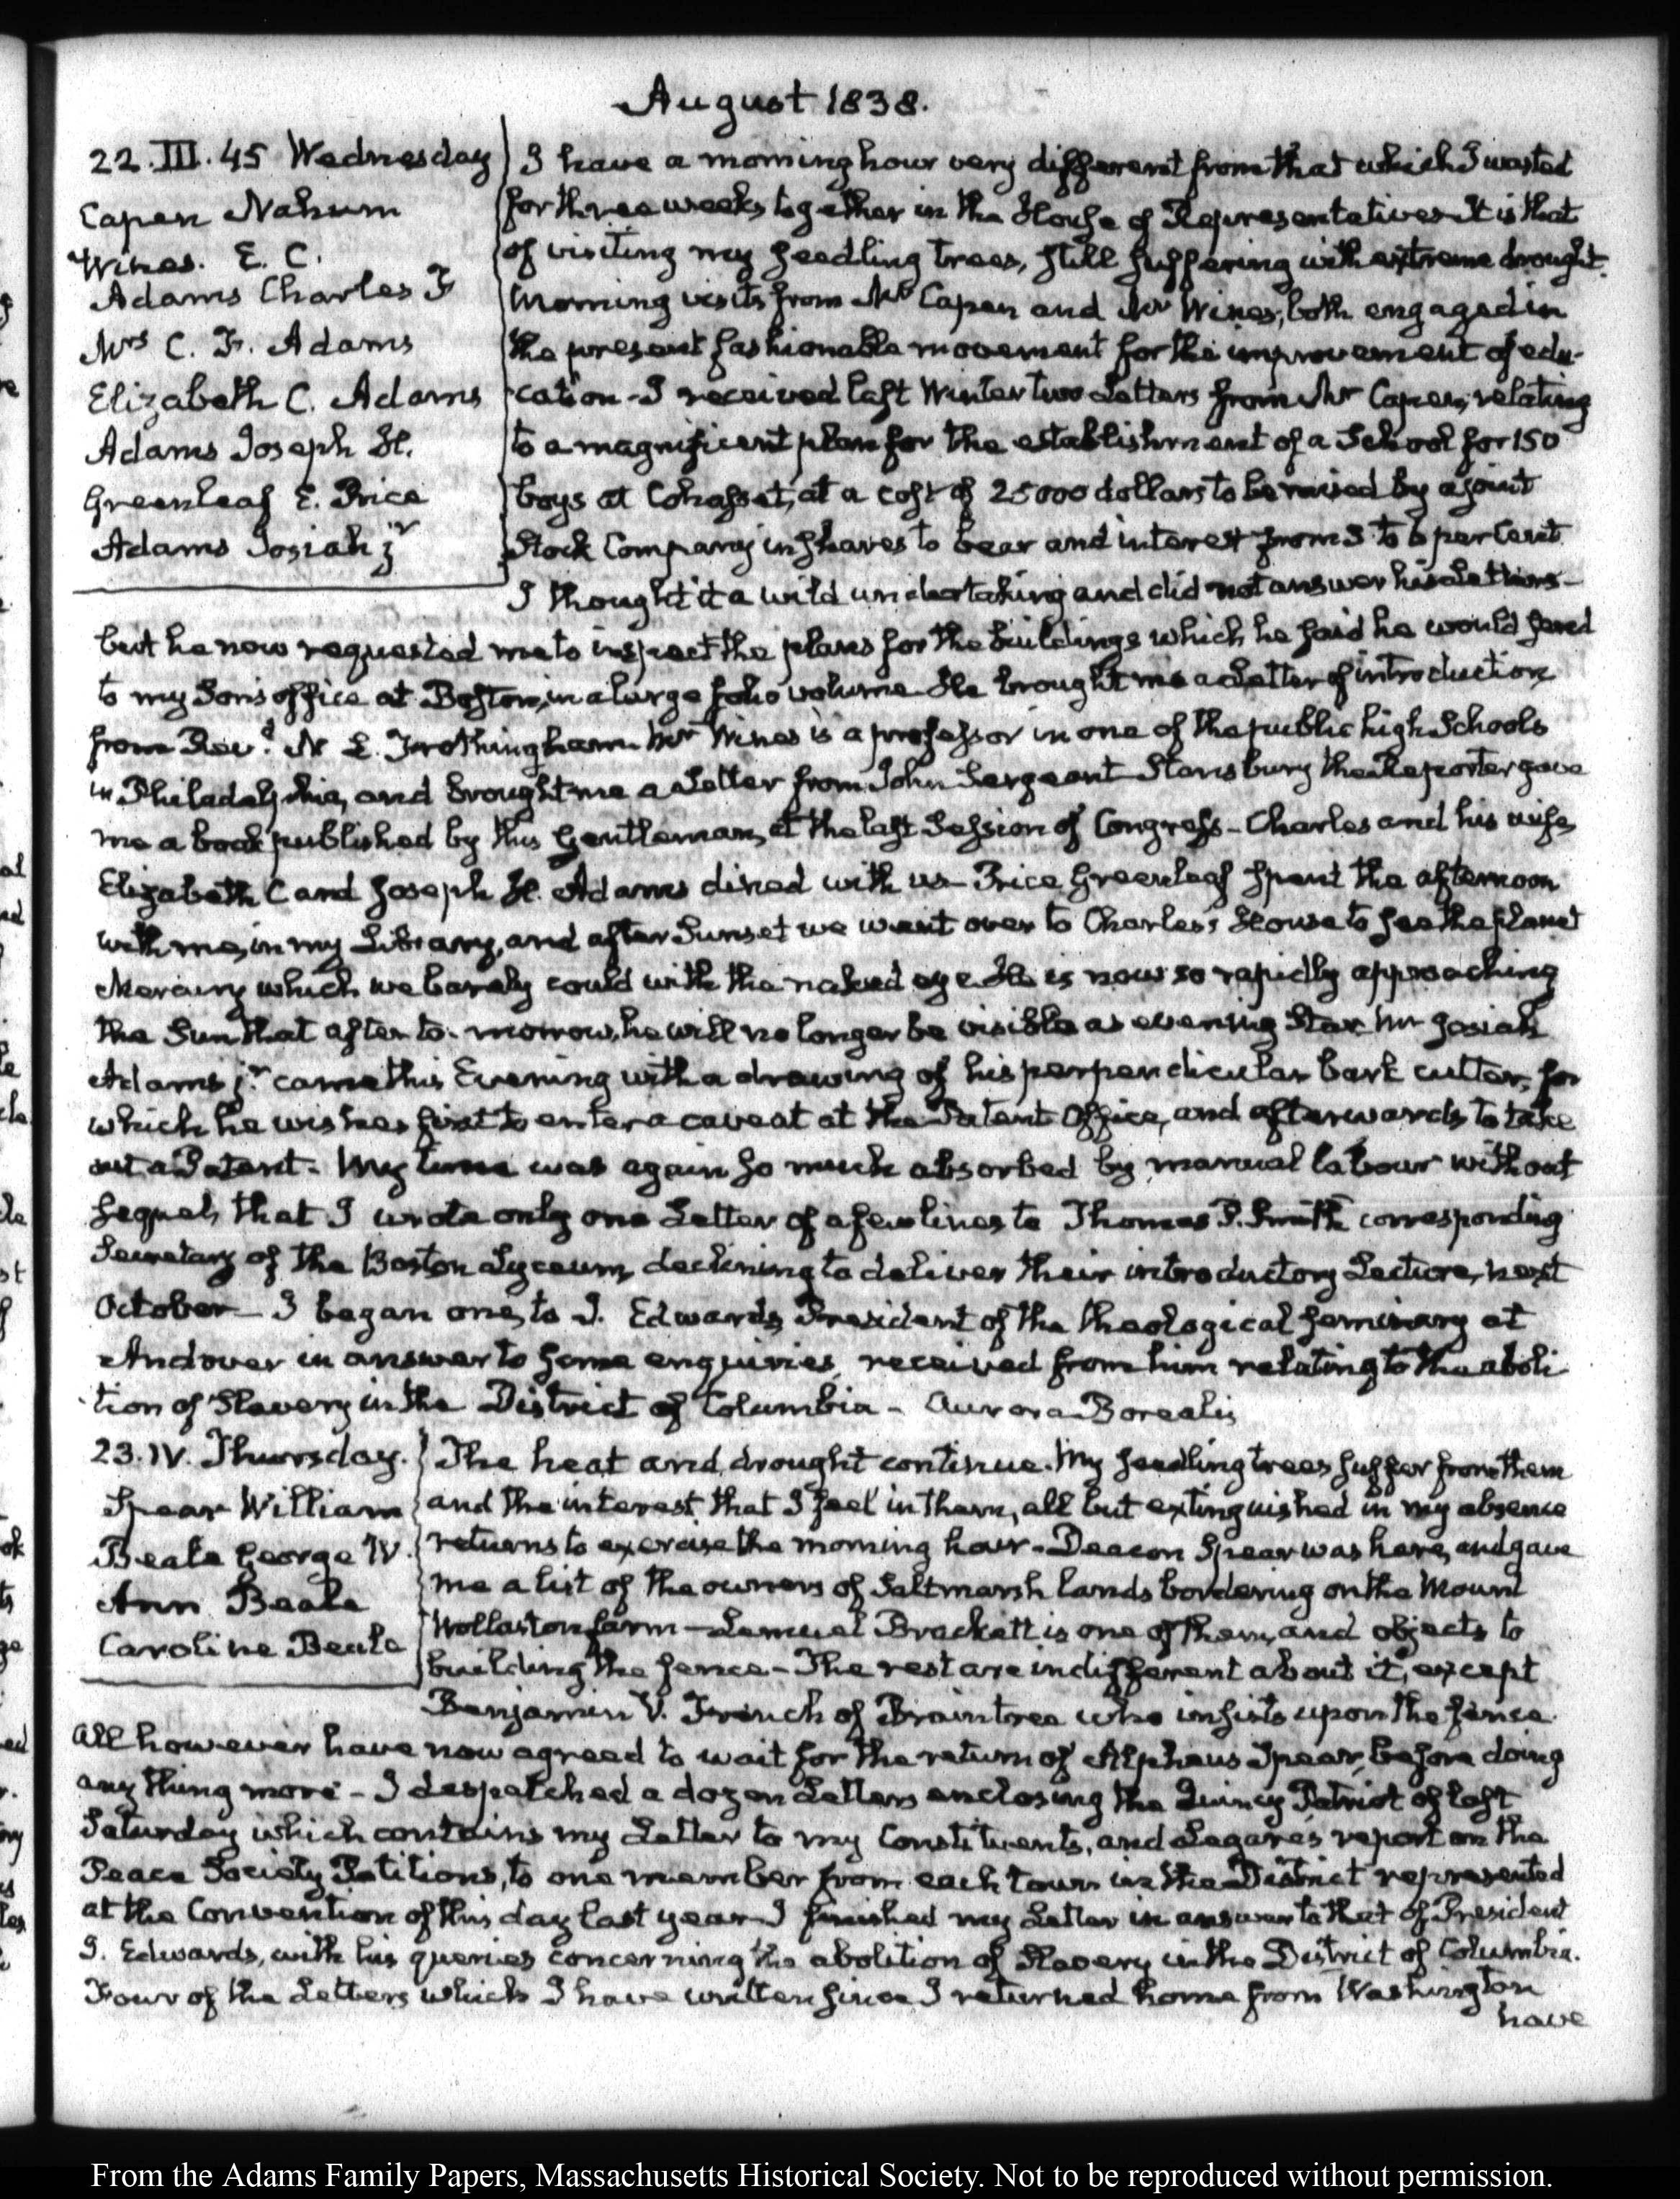 August 1838.
22. III. 45 Wednesday
Capen Nahum
Wines. E. C.
Adams Charles F
Mrs C. F. Adams
Elizabeth C. Adams
Adams Joseph H.
Greenleaf E. Price
Adams Josiah jr
I have a morning hour very different from that which I wasted
for three weeks together in the House of Representatives It is that
of visiting my seedling trees, still suffering with extreme drought.
Morning visits from Mr Capen and Mr Wines, both engaged in
the present fashionable movement for the improvement of edu-
cation - I received last Winter two Letters from Mr Capen, relating
to a magnificent plan for the establishment of a School for 150
boys at Cohasset, at a cost of 25000 dollars to be raised by a joint
Stock Company in shares to bear and interest from 5 to 6 per Cent
I thought it a wild undertaking and did not answer his Letters -
but he now requested me to inspect the plans for the buildings which he said he would send
to my Son's office at Boston, in a large folio volume He brought me a Letter of introduction
from Revd. N L. Frothingham Mr Wines is a professor in one of the public high Schools
in Philadelphia, and brought me a Letter from John Sergeant Stansbury the Reporter gave
me a book published by this Gentleman, at the last Session of Congress - Charles and his wife,
Elizabeth C and Joseph H. Adams dined with us - Price Greenleaf spent the afternoon
with me, in my Library, and after Sunset we went over to Charles's House to see the planet
Mercury which we barely could with the naked eye He is now so rapidly approaching
the Sun that after to-morrow, he will no longer be visible as evening Star Mr Josiah
Adams jr. came this Evening with a drawing of his perpendicular bark cutter, for
which he wishes first to enter a caveat at the Patent Office, and afterwards to take
out a Patent - My time was again so much absorbed by manual labour without
sequel, that I wrote only one Letter of a few lines to Thomas P. Smith corresponding
Secretary of the Boston Lyceum, declining to deliver their introductory Lecture, next
October - I began one, to J. Edwards, President of the theological seminary at
Andover in answer to some enquiries, received from him relating to the aboli
tion of Slavery in the District of Columbia - Aurora Borealis
23. IV. Thursday.
Spear William
Beale George W.
Ann Beale
Caroline Beale
The heat and drought continue. My seedling trees suffer from them
and the interest that I feel in them, all but extinguished in my absence
returns to exercise the morning hour - Deacon Spear was here, and gave
me a list of the owners of Saltmarsh lands bordering on the Mount
Wollaston farm - Lemuel Brackett is one of them, and objects to
building the fence - The rest are indifferent about it, except
Benjamin V. French of Braintree who insists upon the fence.
All however have now agreed to wait for the return of Alpheus Spear, before doing
any thing more - I despatched a dozen Letters enclosing the Quincy Patriot of last
Saturday which contains my Letter to my Constituents, and Legare's report on the
Peace Society Petitions, to one member from each town in the District represented
at the Convention of this day last year - I finished my Letter in answer to that of President
J. Edwards, with his queries concerning the abolition of Slavery in the District of Columbia.
Four of the Letters which I have written since I returned home from Washington
have
From the Adams Family Papers, Massachusetts Historical Society. Not to be reproduced without permission.